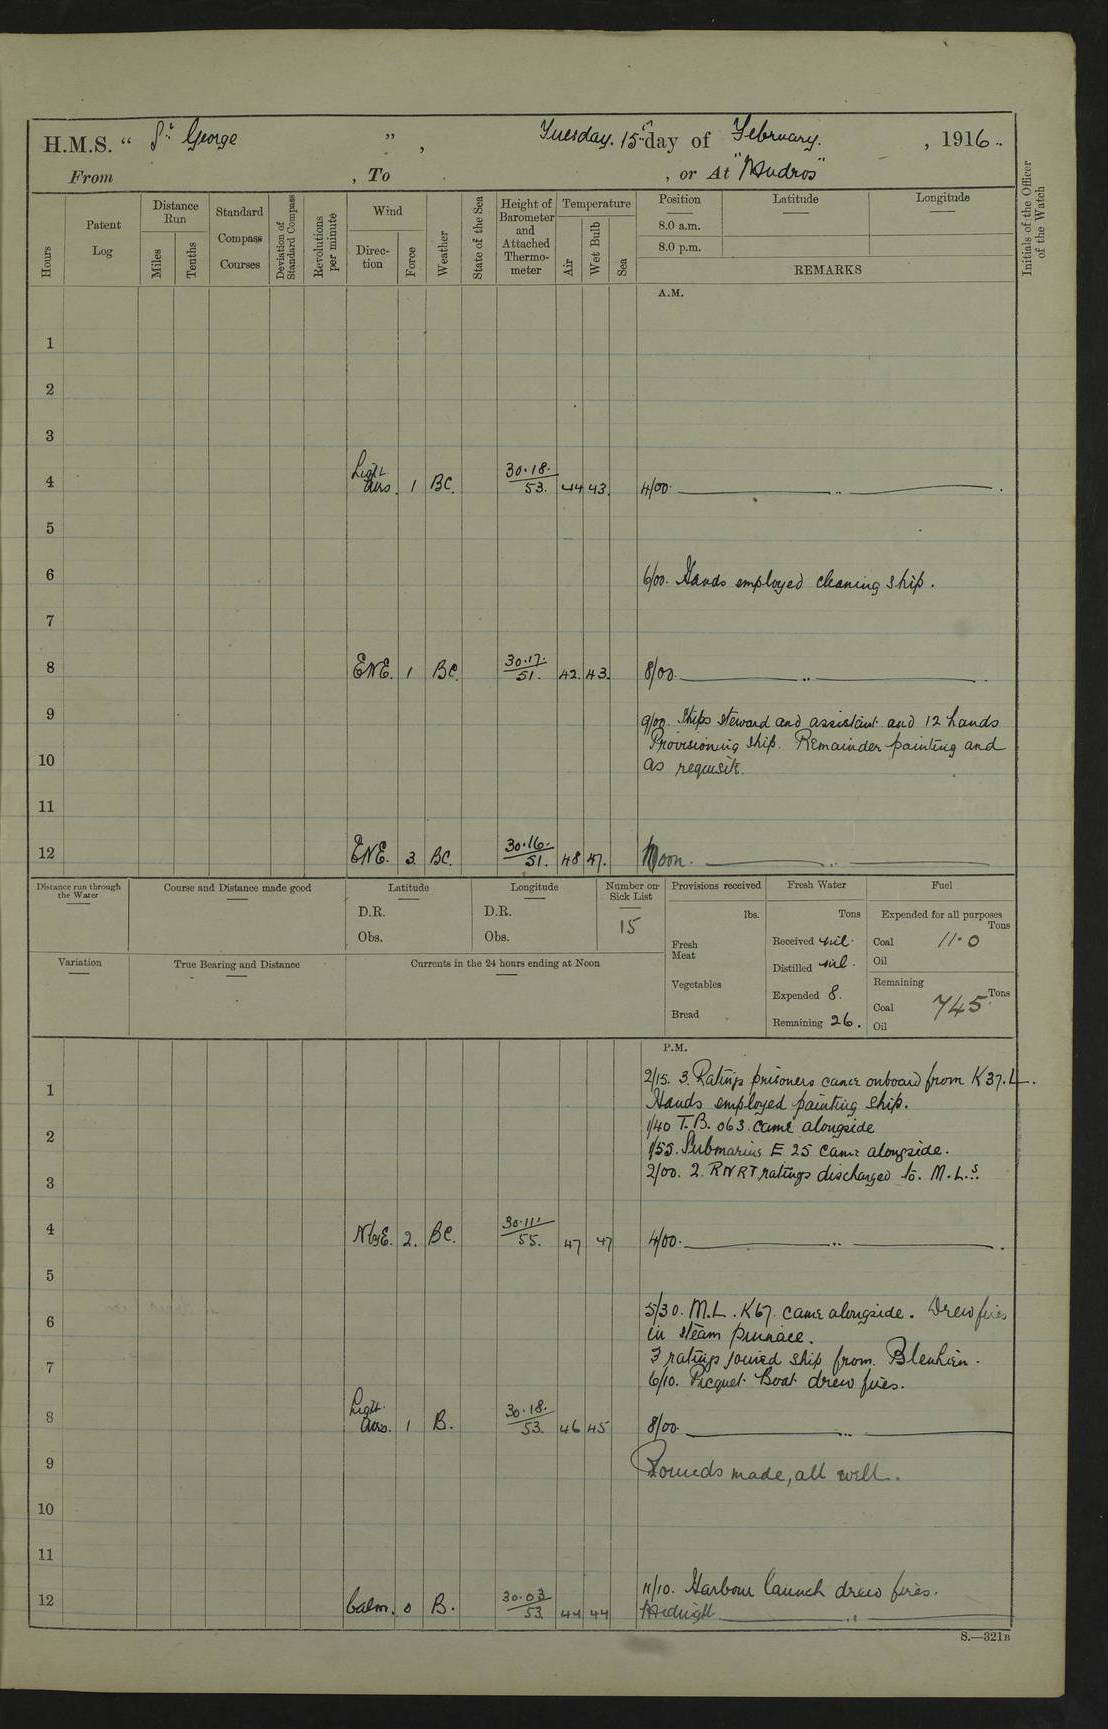 H.M.S. “ St George ” , Tuesday. 15th day of February. , 1916..
From , To , or At "Mudros"
Hours
Patent Log
Distance Run
Miles
Tenths
Standard Compass Courses
Deviation of Standard Compass
Revolutions per minute
Wind
Direction
Force
Weather
State of the Sea
Height of Barometer and Attached Thermometer
Temperature
Air
Wet Bulb
Sea
Position
8.0 a.m.
8.0 p.m.
Latitude
Longitude
REMARKS
Initials of the Officer of the Watch
A.M.
1
2
3
4 Light Airs. 1 BC. 30.18. 53. 44 43. 4/00.
5
6 6/00. Hands employed cleaning ship.
7
8 ENE. 1 BC. 30.17. 51. 42. 43. 8/00.
9 9/00. Ships steward and assistant and 12 hands
Provisioning ship. Remainder painting and
10 as requisite.
11
12 ENE. 3. BC. 30.16. 51. 48 47. Noon.
Distance run through the Water
Course and Distance made good
Latitude
D.R.
Obs.
Longitude
D.R.
Obs.
Number on Sick List
15
Provisions received
lbs.
Fresh Meat
Vegetables
Bread
Fresh Water
Tons
Received nil.
Distilled nil.
Expended 8.
Remaining 26.
Fuel
Expended for all purposes
Tons
Coal 11.0
Oil
Remaining
Tons
Coal 745
Oil
Variation
True Bearing and Distance
Currents in the 24 hours ending at Noon
P.M.
2/15. 3. Ratings prisoners came onboard from K37.L.
1 Hands employed painting ship.
1/40 T.B. 063 came alongside
2 1/55. Submarine E 25 came alongside.
2/00. 2. RNRT ratings discharged to. M.L.s.
3
4 NbyE. 2. BC. 30.11' 55. 47 47 4/00.
5
6 5/30. M.L. K67. came alongside. Drew fires
in steam pinnace.
7 3 ratings joined ship from. Blenheim.
6/10. Picquet Boat drew fires.
8 Light Airs. 1 B. 30.18. 53. 46 45 8/00.
9 Rounds made, all well.
10
11
11/10. Harbour launch drew fires.
12 Calm. 0 B. 30.03 53. 44 44 Midnight
S.—321B